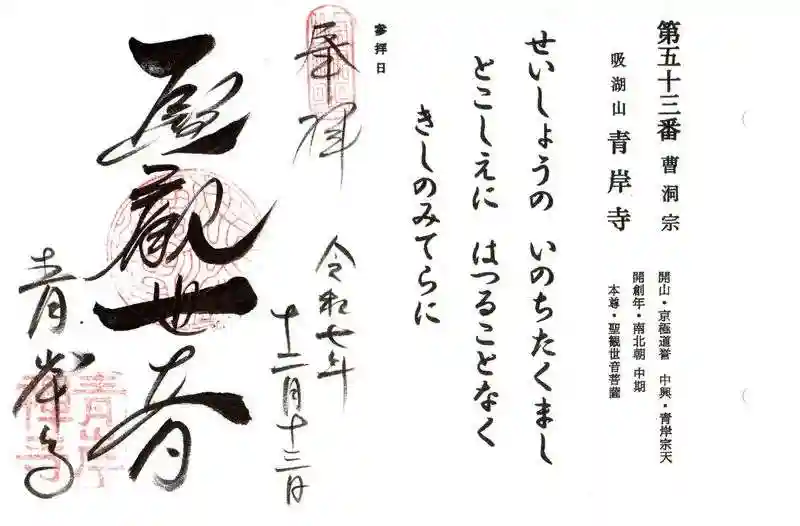 第五十三番 曹洞宗
吸湖山 青岸寺
開山・京極道誉 中興・青岸宗天
開創年・南北朝 中期
本尊・聖観世音菩薩
せいしょうの いのちたくまし
とこしえに はつることなく
きしのみてらに
参拝日
奉拝
令和七年
十二月十三日
聖観世音
青岸寺
青岸
禅寺